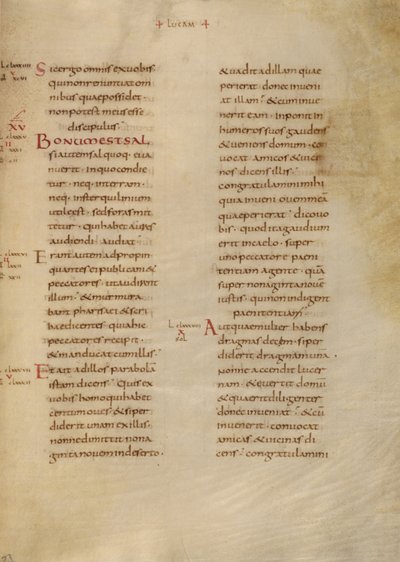 + LUCAM +
Sic ergo omnis ex vobis
qui non renuntiat om
nibus quae possidet
non potest meus esse
discipulus
XV
Bonum est sal
si autem sal quoq. eva
nuerit · in quo condie
tur · neq. in terram ·
neq. in sterquilinium
utile est · sed foras mit
tetur · qui habet aures
audiendi audiat
Erant autem adpropin
quantes ei publicani &
peccatores · ut audirent
illum · & murmura
bant pharisaei & scri
bae dicentes · quia hic
peccatores recipit ·
& manducat cum illis ·
Et ait ad illos parabolā
istam dicens · Quis ex
vobis homo qui habet
centum oves · & si per
diderit unam ex illis ·
nonne dimittit nona
ginta novem in deserto ·
& vadit ad illam quae
perierat · donec inveni
at illam · & cum inve
nerit eam · inponit in
humeros suos gaudens
& veniens domum · con
vocat amicos & vici
nos dicens illis ·
congratulamini mihi
quia inveni ovem mea
quae perierat · dico vo
bis · quod ita gaudium
erit in caelo · super
uno peccatore paeni
tentiam agente · quā
super nonaginta nove
iustis · qui non indigent
paenitentiam ·
Aut quae mulier habens
dragmas decem · si per
diderit dragmam unā ·
Nonne accendit lucer
nam · & evertit domū
& quaerit diligenter
donec inveniat · & cū
invenerit · convocat
amicas & vicinas di
cens · congratulamini